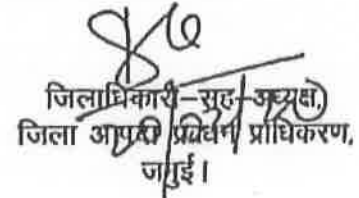 जिलाधिकारी-सह-अध्यक्ष,
जिला आपदा प्रबंधन प्राधिकरण,
जमुई।